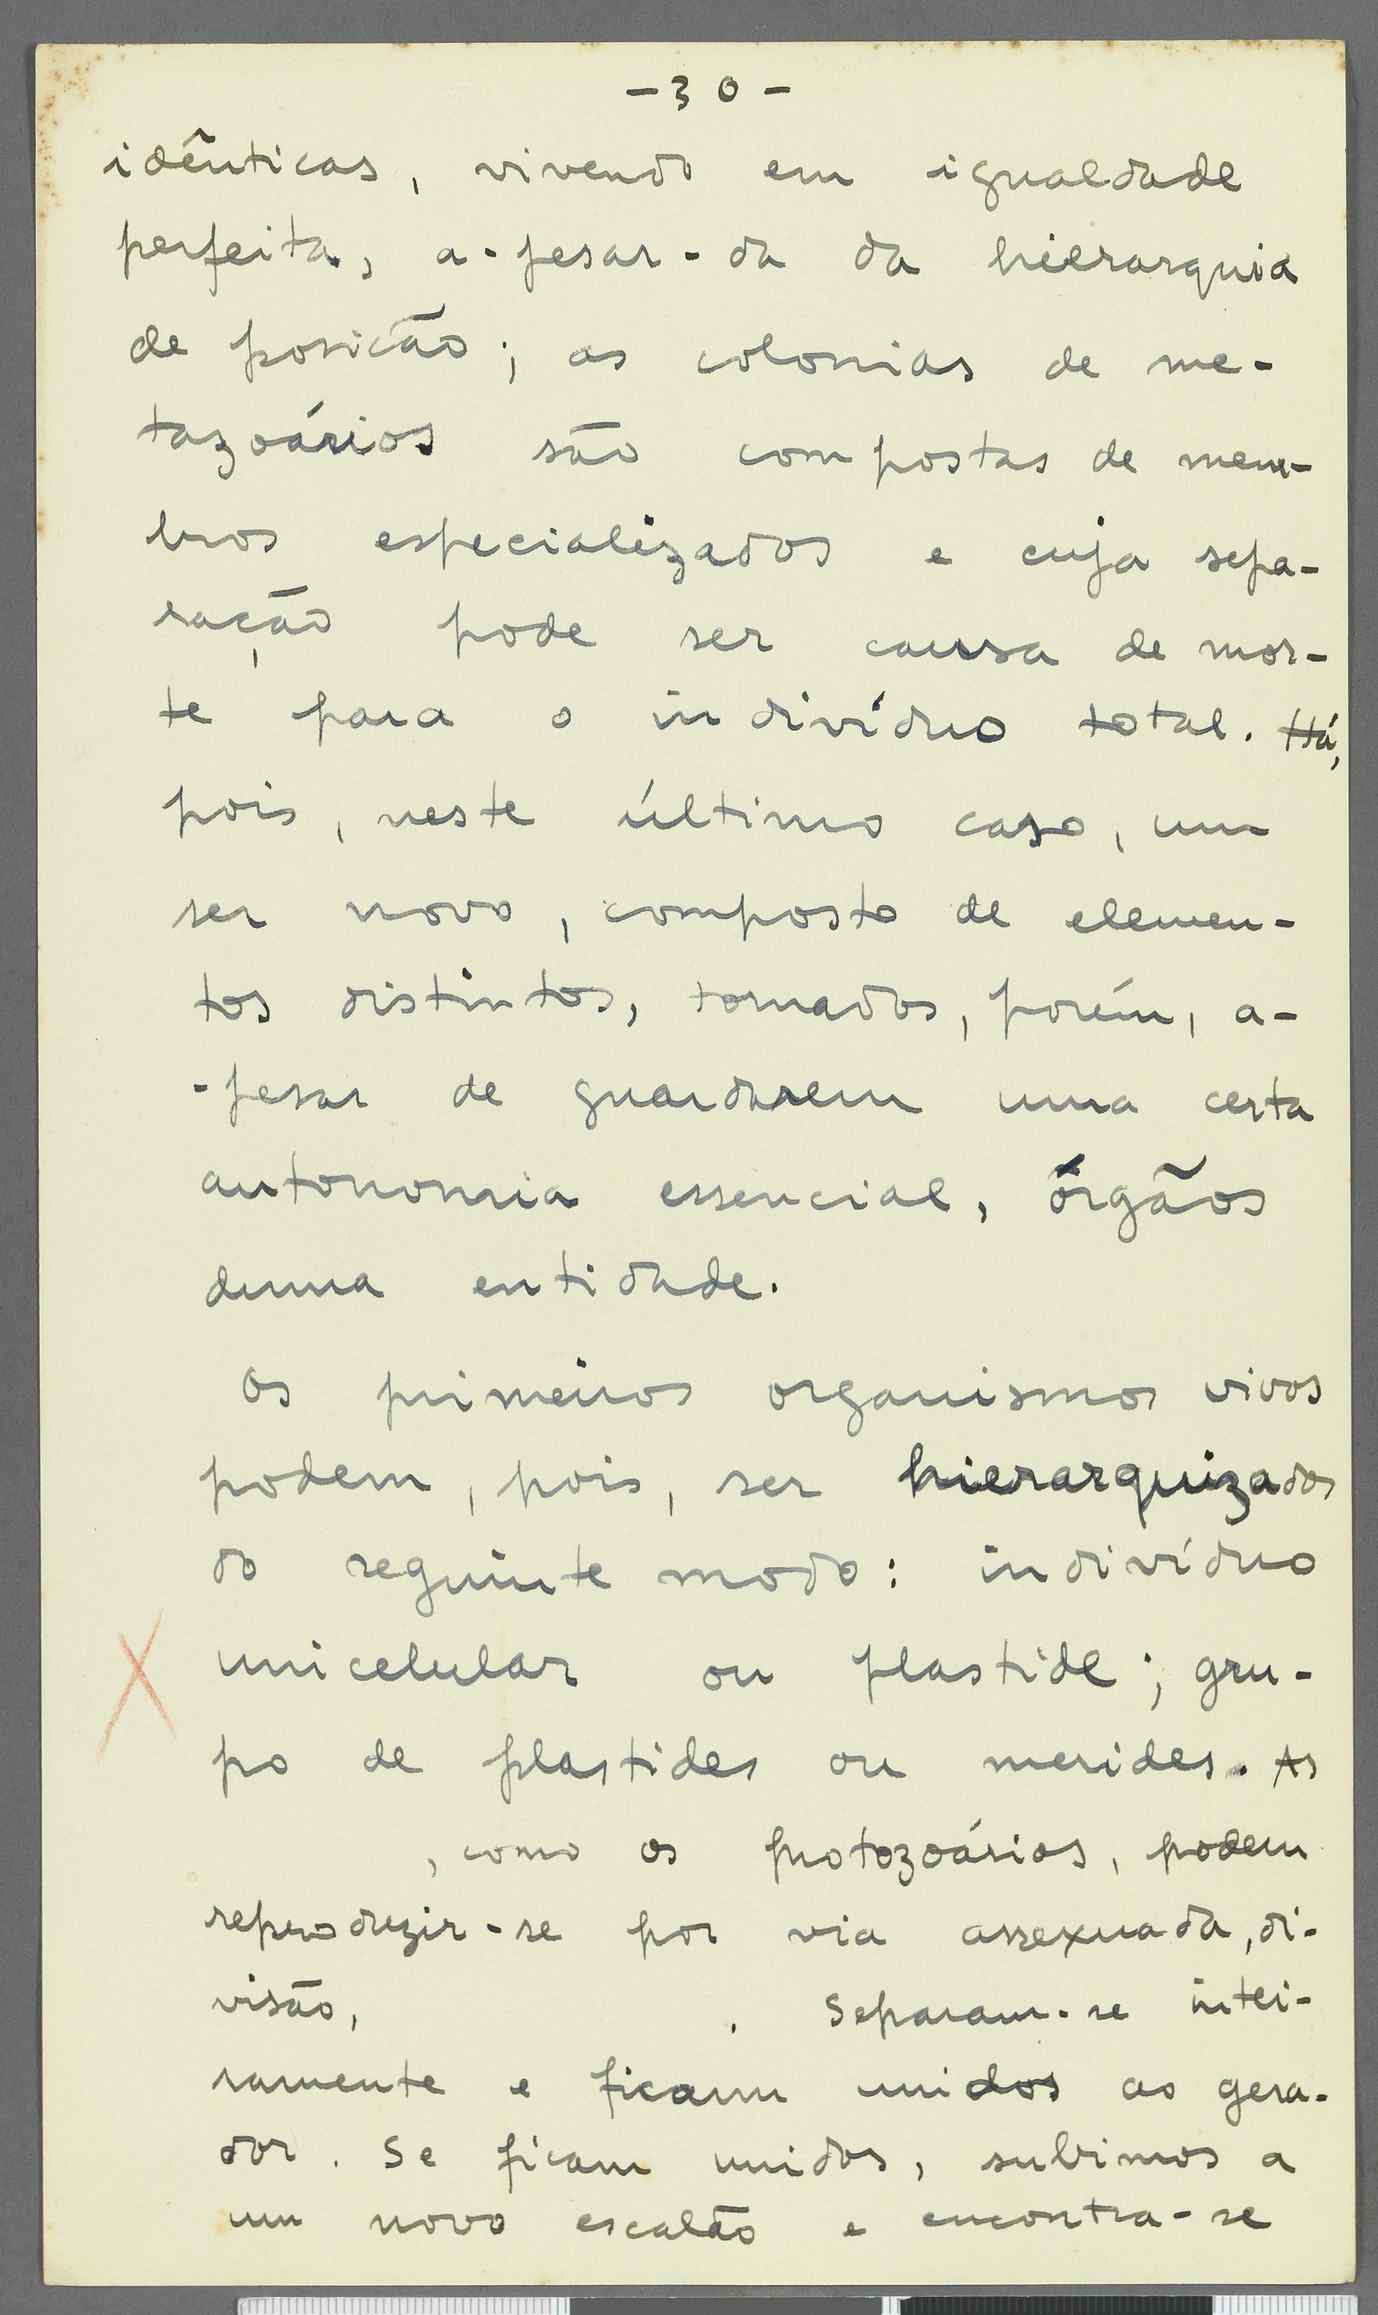 -30-
idênticas, vivendo em igualdade
perfeita, a-pesar-da da hierarquia
de posicão; as colonias de me-
tazoários são compostas de mem-
bros especializados e cuja sepa-
ração pode ser causa de mor-
te para o indivíduo total. Há,
pois, neste último caso, um
ser novo, composto de elemen-
tos distintos, tornados, porém, a-
-pesar de guardarem uma certa
autonomia essencial, órgãos
duma entidade.
Os primeiros organismos vivos
podem, pois, ser hierarquizados
do seguinte modo: indivíduo
unicelular ou plastide; gru-
po de plastides ou merides. As
, como os protozoários, podem
reproduzir-se por via assexuada, di-
visão, . Separam-se intei-
ramente e ficam unidos ao gera-
dor. Se ficam unidos, subimos a
um novo escalão e encontra-se